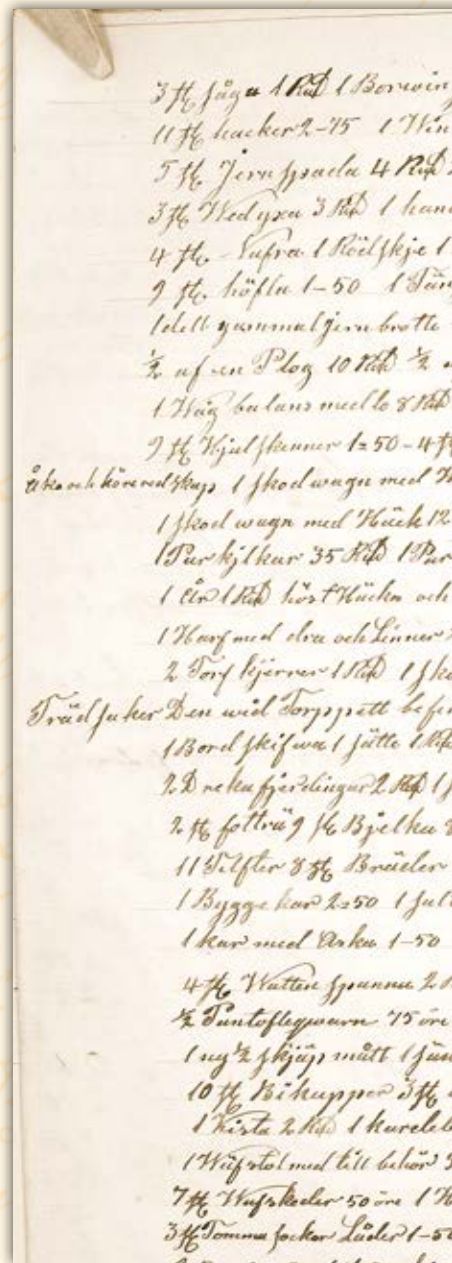 3 st såga 1 RdD 1 Borwin
11 st hacker 2-75 1 Win
5 st Jernspada 4 RdD
3 st Wedyxa 3 RdD 1 han
4 st 1 1
9 st höfla 1-50 1 Tän
1 dell gammal jern brotte
½ af en Plog 10 RdD ½
1 Wåg balans med lo 8 RdD
9 st Hjulskenner 1=50-4 st
Åko och köreredskap 1 skod wagn med H
1 skod wagn med Häck 12
1 Par kjlkar 35 RdD 1 Par
1 år 1 RdD höst Häcka och
1 Harf med dra och Linner
2 Torf kjerrer 1 RdD 1 sk
Trädsaker Den wid Torppett befin
1 Bord skifwa 1 1 RdD
2 Dreka fjerdingar 2 RdD 1
2 st fotträ 9 st Bjelka 8
11 Tilfter 8 st Bräder
1 Bygge kar 2=50 1
1 kar med Aska 1-50
4 st Watten spanna 2
½ Pantofleqwarn 75 öre
1 ny ½ skjäp mått 1
10 st Bikupper 3 st
1 Kista 2 RdD 1
1 Wäfstol med till behör
7 st Wäfskeder 50 öre 1
3 st Tomma Låder 1-50